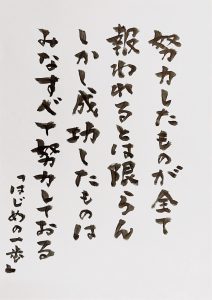 努力したものが全て
報われるとは限らん
しかし成功したものは
みなすべて努力しておる
「はじめの一歩」